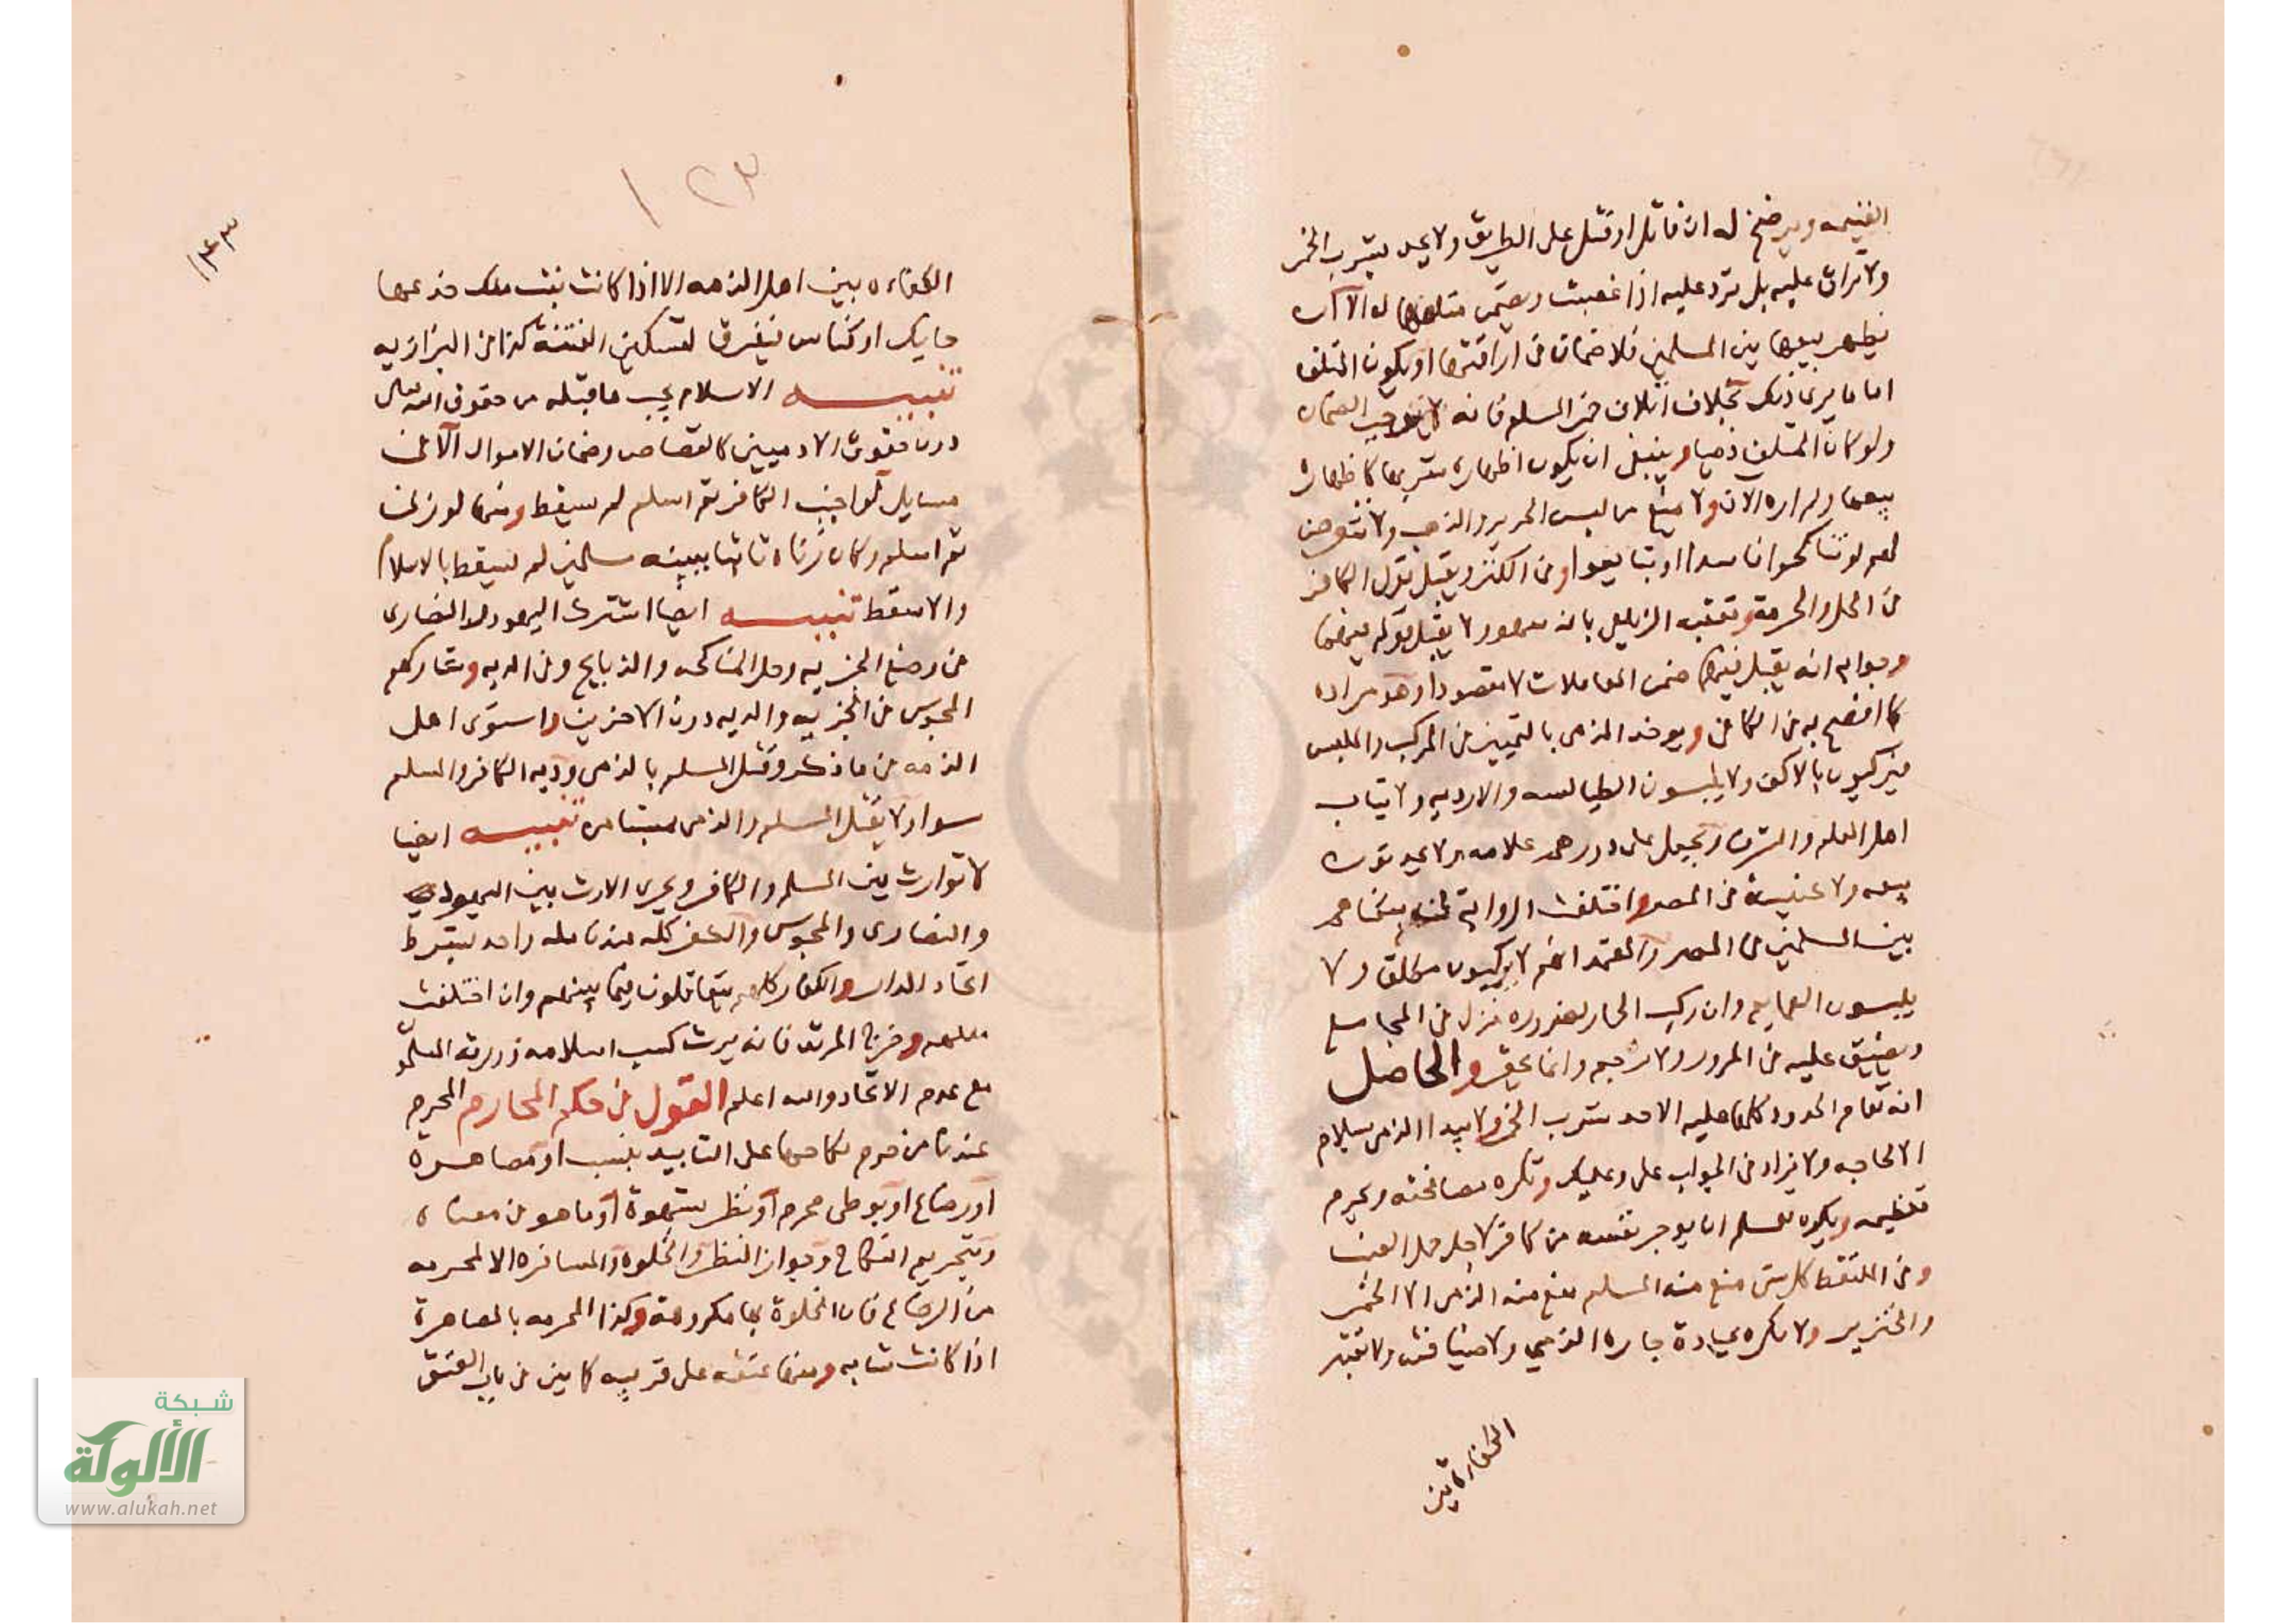 الغنيمه ويرضخ له ان قاتل او قتل على الطريق ولا يحد بشرب الخمر
ولا تراق عليه بل ترد عليه اذا غصبت ويضمن متلفها له الا ان
يظهر بيعها بين المسلمين فلا ضمان في اراقتها او يكون المتلف
اماما يرى ذلك بخلاف اتلاف خمر المسلم فانه لا يوجب الضمان
ولو كان المتلف ذميا وينبغي ان يكون اظهاره شربها كاظهاره
بيعها ولم اره الان ولا يمنع من لبس الحرير والذهب ولا نتعرض
لهم لو تناكحوا فاسدا او تبايعوا وفي الكنز ويقبل قول الكافر
في الحل والحرمة وتعقبه الزيلعي بانه سهو ولا يقبل قوله فيهما
وجوابه انه يقبل فيهما ضمن المعاملات لا مقصودا وهو مراده
كما افصح به في الكافي ويوخذ الذمي بالتمييز في المركب والملبس
فيركبون بالاكف ولا يلبسون الطيالسه والارديه ولا ثياب
اهل العلم والشرف وتجعل على دورهم علامه ولا يحدثون
بيعه ولا كنيسة في المصر واختلفت الرواية في سكناهم
بين المسلمين في المصر والمعتمد انهم لا يركبون مطلقا ولا
يلبسون العمايم وان ركب الحمار لضروره نزل في المجامع
ويضيق عليه في المرور ولا نرجم وانما يحقر والحاصل
انه تقام الحدود كلها عليه الا حد شرب الخمر ولا يبدا الذمي بسلام
الا لحاجه ولا يزاد في الجواب على وعليك وتكره مصافحته ويحرم
تعظيمه ويكره لمسلم ان يوجر نفسه من كافر لاجل حمل العنب
وفي الملتقط كل شي منع منه المسلم منع منه الذمي الا الخمر
والخنزير ولا تكره عيادة جاره الذمي ولا ضيافته ولا تعتبر
الكفاءه بين
١٢٣
١٤٣
الكفاءه بين اهل الذمه الا اذا كانت بنت ملك خدعها
حايك او كناس فيفرق لتسكين الفتنة كذا في البزازيه
تنبيه الاسلام يجب ما قبله من حقوق الله تعالى
دون حقوق الادميين كالقصاص وضمان الاموال الا في
مسايل لو اجنب الكافر ثم اسلم لم يسقط ومنها لو زنى
ثم اسلم وكان زناه ثابتا ببينه مسلمين لم يسقط بالاسلام
والا سقط تنبيه ايضا اشترك اليهود والنصارى
في وضع الجزيه وحل المناكحه والذبايح وفي الديه وشاركهم
المجوس في الجزيه والديه دون الاخرين واستوى اهل
الذمه في ما ذكر وقتل المسلم بالذمي ودية الكافر والمسلم
سوا ولا يقتل المسلم والذمي بمستامن تنبيه ايضا
لا توارث بين المسلم والكافر ويجرى الارث بين اليهودي
والنصارى والمجوس والكفر كله عندنا مله واحد بشرط
اتحاد الدار والكفار كلهم يتعاقلون فيما بينهم وان اختلفت
مللهم وخرج المرتد فانه يرث كسب اسلامه ورثته المسلمون
مع عدم الاتحاد والله اعلم القول في حكم المحارم المحرم
عندنا من حرم نكاحها على التابيد بنسب او مصاهرة
او رضاع او بوطى محرم او نظر بشهوة او ما هو في معناه
وتحريم النكاح وجواز النظر والخلوة والمسافره الا المحرمه
من الرضاع فان الخلوة بها مكروهة وكذا المحرمه بالمصاهرة
اذا كانت شابه ومنها عتقه على قريبه كما بين في باب العتق
شبكة
الألوكة
www.alukah.net